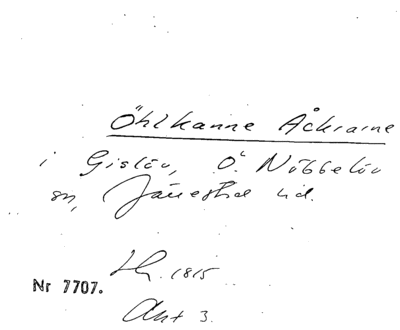 Öhlkanne Åckrarne
i Gislöv, Ö. Nöbbelöv
sn, Järrestad hd.
LH. 1815
Nr 7707.
Akt 3.